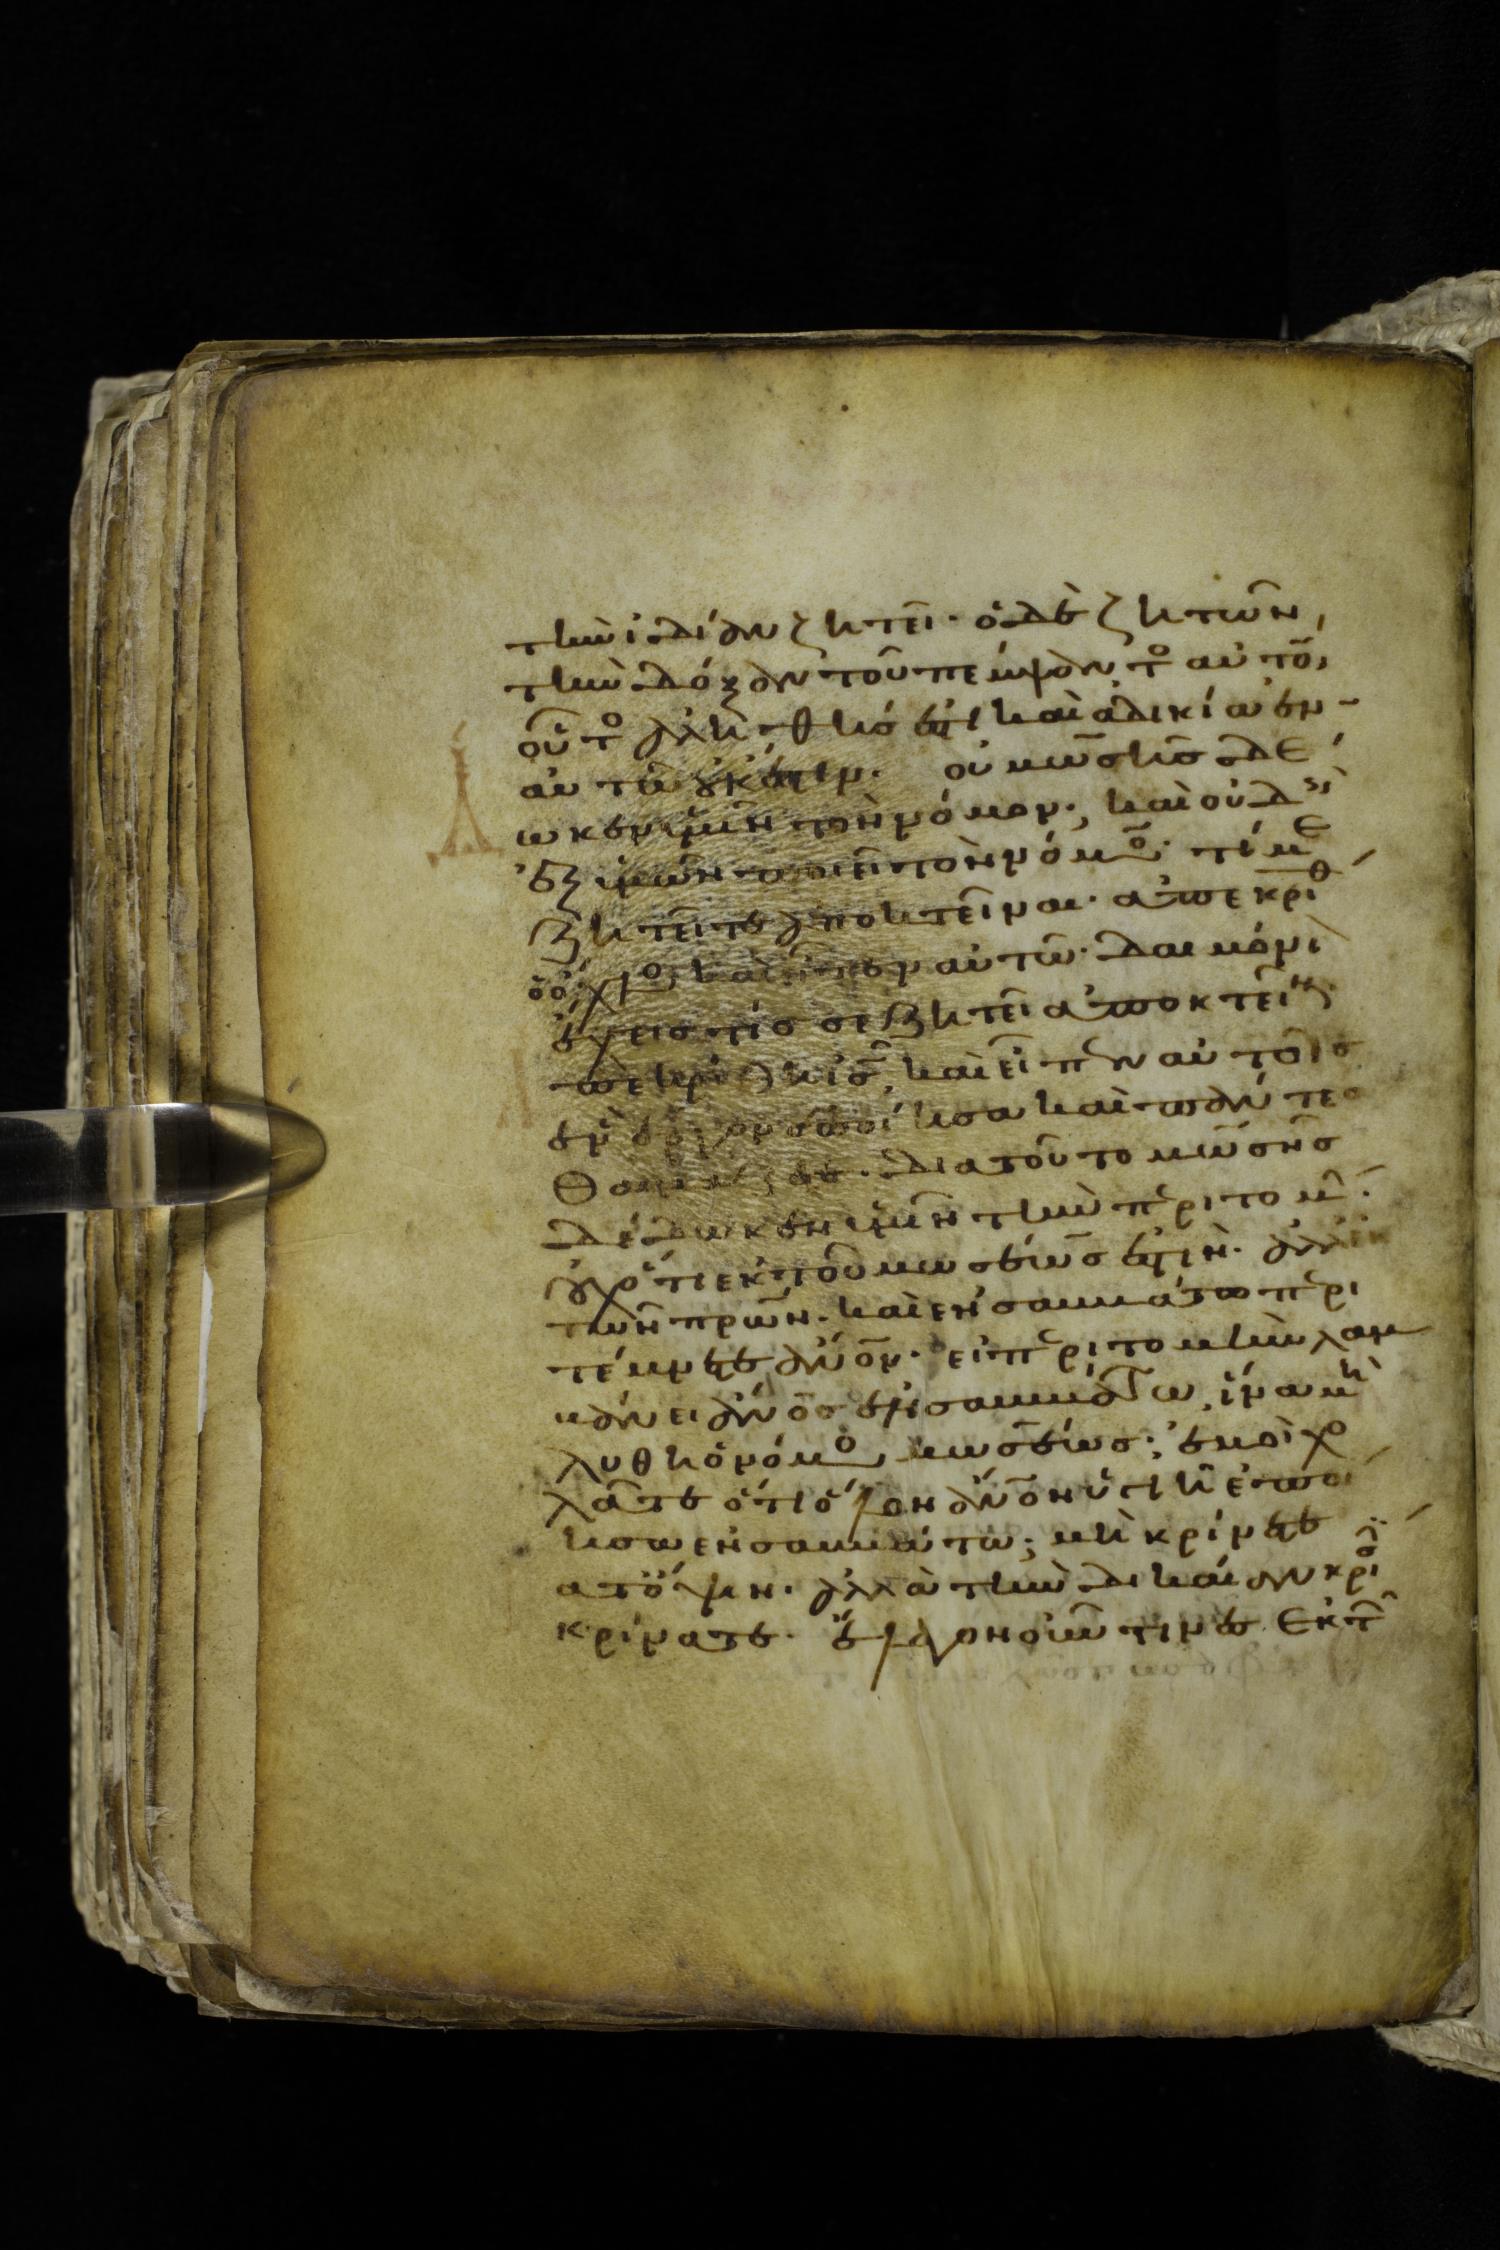 τὴν ἰδίαν ζητεῖ· ὁ δὲ ζητῶν,
τὴν δόξαν τοῦ πέμψαντο αὐτὸ,
οὗτο ἀληθής ἐστι καὶ ἀδικία ἐν
αὐτῶ οὐκ ἔστιν. οὐ μωσῆς δέ
Δωκεν ὑμῖν τὸν νόμον; καὶ οὐδεὶ
ἐξ ὑμῶν ποιεῖ τὸν νόμο· τί με
ζητεῖτε ἀποκτεῖναι· ἀπεκρίθ
ὁ ὄχλο καὶ εἶπεν αὐτῶ· δαιμόνι
ἔχεις τίς σε ζητεῖ ἀποκτεῖν
Απεκρίθη ις καὶ εἶπεν αὐτοῖς
ἐν ἔργον ἐποίησα καὶ πάντες
θαυμάζετε· διατοῦτο μωϋσῆς
δέδωκεν ὑμῖν τὴν περιτομ·
οὐχ ὅτι ἐκ τοῦ μωσέως ἐστὶν· ἀλλ' ἐκ
τῶν πρων. καὶ ἐν σαββάτω περι
τέμνετε ἄνον· εἰ περιτομὴν λαμ
βάνει ἄνος ἐν σαββάτω ἵνα μὴ
λυθῆ ὁ νόμο μωσέως; ἐμοὶ χο
λᾶτε ὅτι ὅλον ἄνον ὑγιῆ ἐποί
ησα ἐν σαββάτω; μὴ κρίνετε
κατ' ὄψιν· ἀλλὰ τὴν δικαίαν κρίσι
κρίνατε. ἔλεγον οὖν τινὲς ἐκ τ